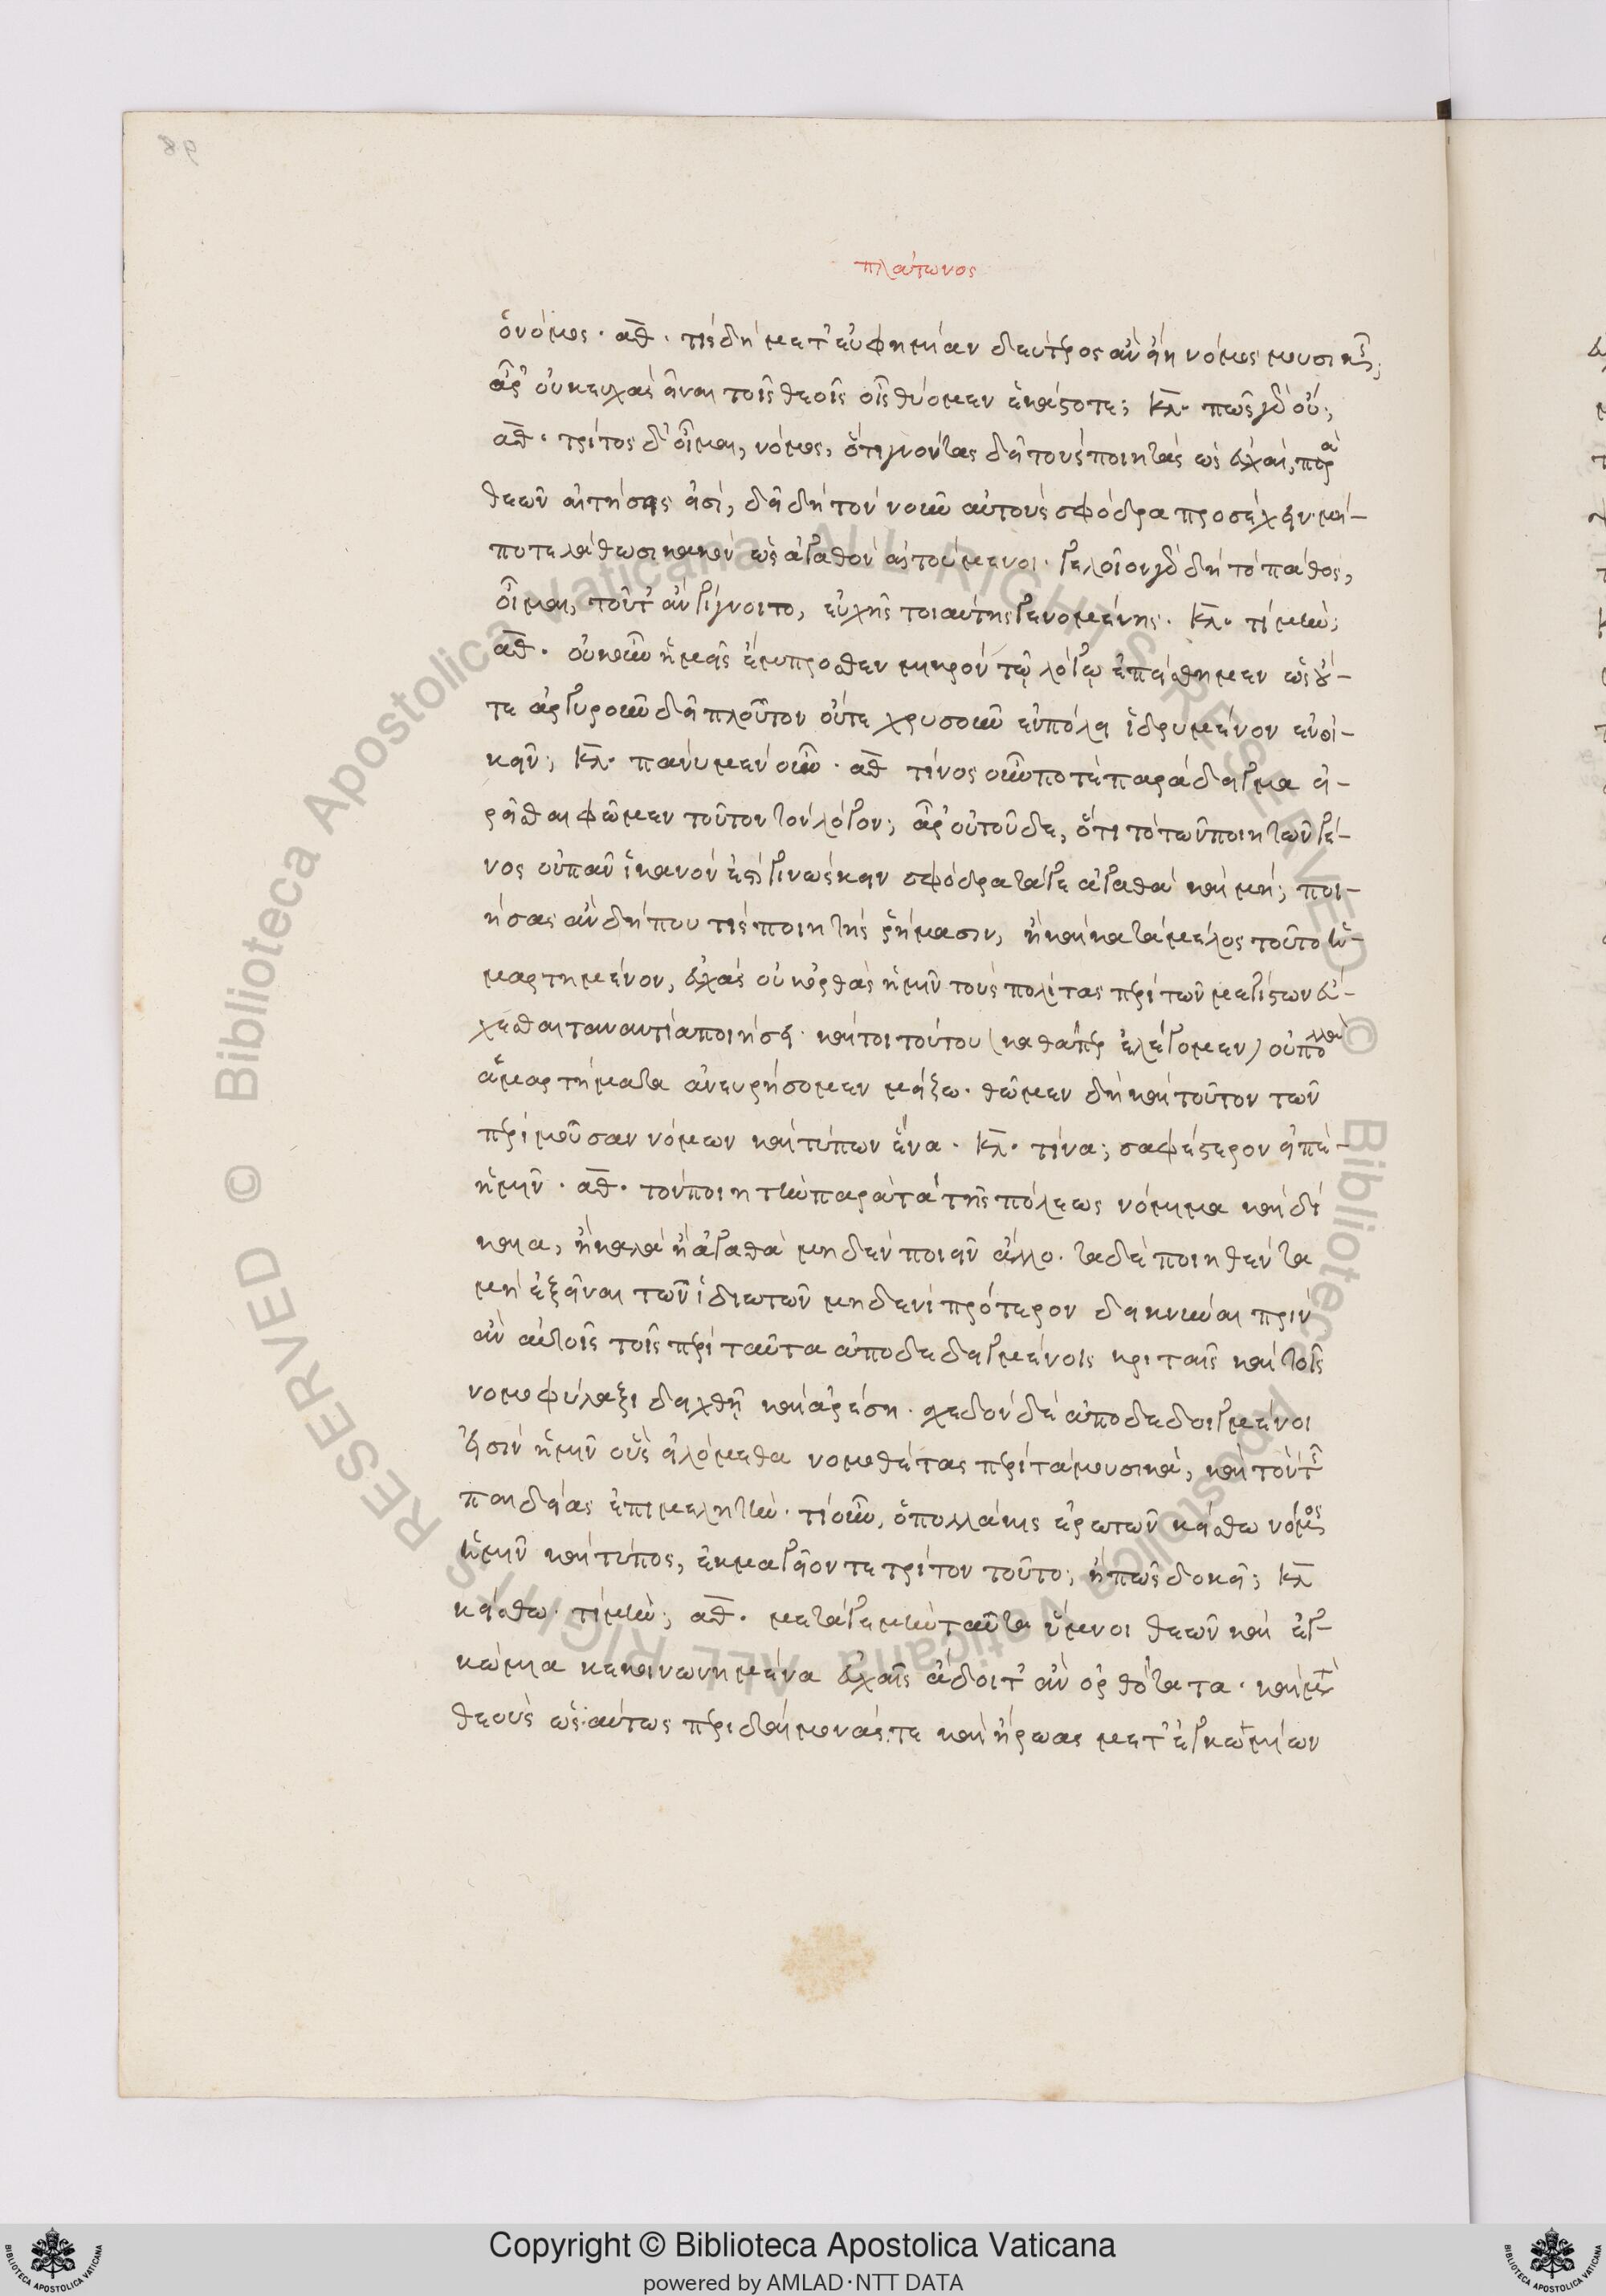 πλάτωνος
ὁ νόμος · αθ · τίς δὴ μετ' εὐφημίαν δεύτερος ἂν εἴη νόμος μουσικῆς;
ἆρ' οὐκ εὐχὰς εἶναι τοῖς θεοῖς οἷς θύομεν ἑκάστοτε; κλ · πῶς γὰρ οὔ;
αθ · τρίτος δ' οἶμαι, νόμος, ὅτι γνόντας δεῖ τοὺς ποιητὰς ὡς εὐχαὶ, παρὰ
θεῶν αἰτήσεις εἰσὶ, δεῖ δὴ τὸν νοῦν αὐτοὺς σφόδρα προσέχειν· μή-
ποτε λάθωσι κακὸν ὡς ἀγαθὸν αἰτούμενοι · γελοῖον γὰρ δὴ τὸ πάθος,
οἶμαι, τοῦτ' ἂν γίγνοιτο, εὐχῆς τοιαύτης γενομένης · κλ · τί μήν;
αθ · οὐκοῦν ἡμεῖς ἔμπροσθεν μικρὸν τῷ λόγῳ ἐπείσθημεν ὡς οὔ-
τε ἀργυροῦν δεῖ πλοῦτον οὔτε χρυσοῦν ἐν πόλει ἱδρυμένον ἐνοι-
κεῖν; κλ · πάνυ μὲν οὖν · αθ τίνος οὖν ποτὲ παράδειγμα εἰ-
ρῆσθαι φῶμεν τοῦτον τὸν λόγον; ἆρ' οὐ τοῦδε, ὅτι τὸ τῶν ποιητῶν γέ-
νος οὐ πᾶν ἱκανόν ἐστι γινώσκειν σφόδρα τά γε ἀγαθὰ καὶ μή; ποι-
ήσας ἂν δήπου τὶς ποιητὴς ῥήμασιν, ἢ καὶ κατὰ μέλος τοῦτο ἡ-
μαρτημένον, εὐχὰς οὐκ ὀρθὰς ἡμῖν τοὺς πολίτας περὶ τῶν μεγίστων εὔ-
χεσθαι τἀναντία ποιήσει · καίτοι τούτου (καθάπερ ἐλέγομεν) οὐ πολλὰ
ἁμαρτήματα ἀνευρήσομεν μείζω · θῶμεν δὴ καὶ τοῦτον τῶν
περὶ μοῦσαν νόμων καὶ τύπων ἕνα · κλ · τίνα; σαφέστερον εἰπὲ
ἡμῖν · αθ · τὸν ποιητὴν παρὰ τὰ τῆς πόλεως νόμιμα καὶ δί
καια, ἢ καλὰ ἢ ἀγαθὰ μηδὲν ποιεῖν ἄλλο · τὰ δὲ ποιηθέντα
μὴ ἐξεῖναι τῶν ἰδιωτῶν μηδενὶ πρότερον δεικνύναι πρὶν
ἂν αὐτοῖς τοῖς περὶ ταῦτα ἀποδεδειγμένοις κριταῖς καὶ τοῖς
νομοφύλαξι δειχθῇ καὶ ἀρέσῃ · σχεδὸν δὲ ἀποδεδειγμένοι
εἰσὶν ἡμῖν οὓς εἱλόμεθα νομοθέτας περὶ τὰ μουσικὰ, καὶ τὸν τῆς
παιδείας ἐπιμελητήν · τί οὖν, ὃ πολλάκις ἐρωτῶν κείσθω νόμος
ἡμῖν καὶ τύπος, ἐκμαγεῖόν τε τρίτον τοῦτο; ἢ πῶς δοκεῖ; κλ
κείσθω · τί μήν; αθ · μετά γε μὴν ταῦτα ὕμνοι θεῶν καὶ ἐγ-
κώμια κεκοινωνημένα εὐχαῖς ᾄδοιτ' ἂν ὀρθότατα · καὶ μετὰ
θεοὺς ὡσαύτως περὶ δαίμονάς τε καὶ ἥρωας μετ' ἐγκωμίων